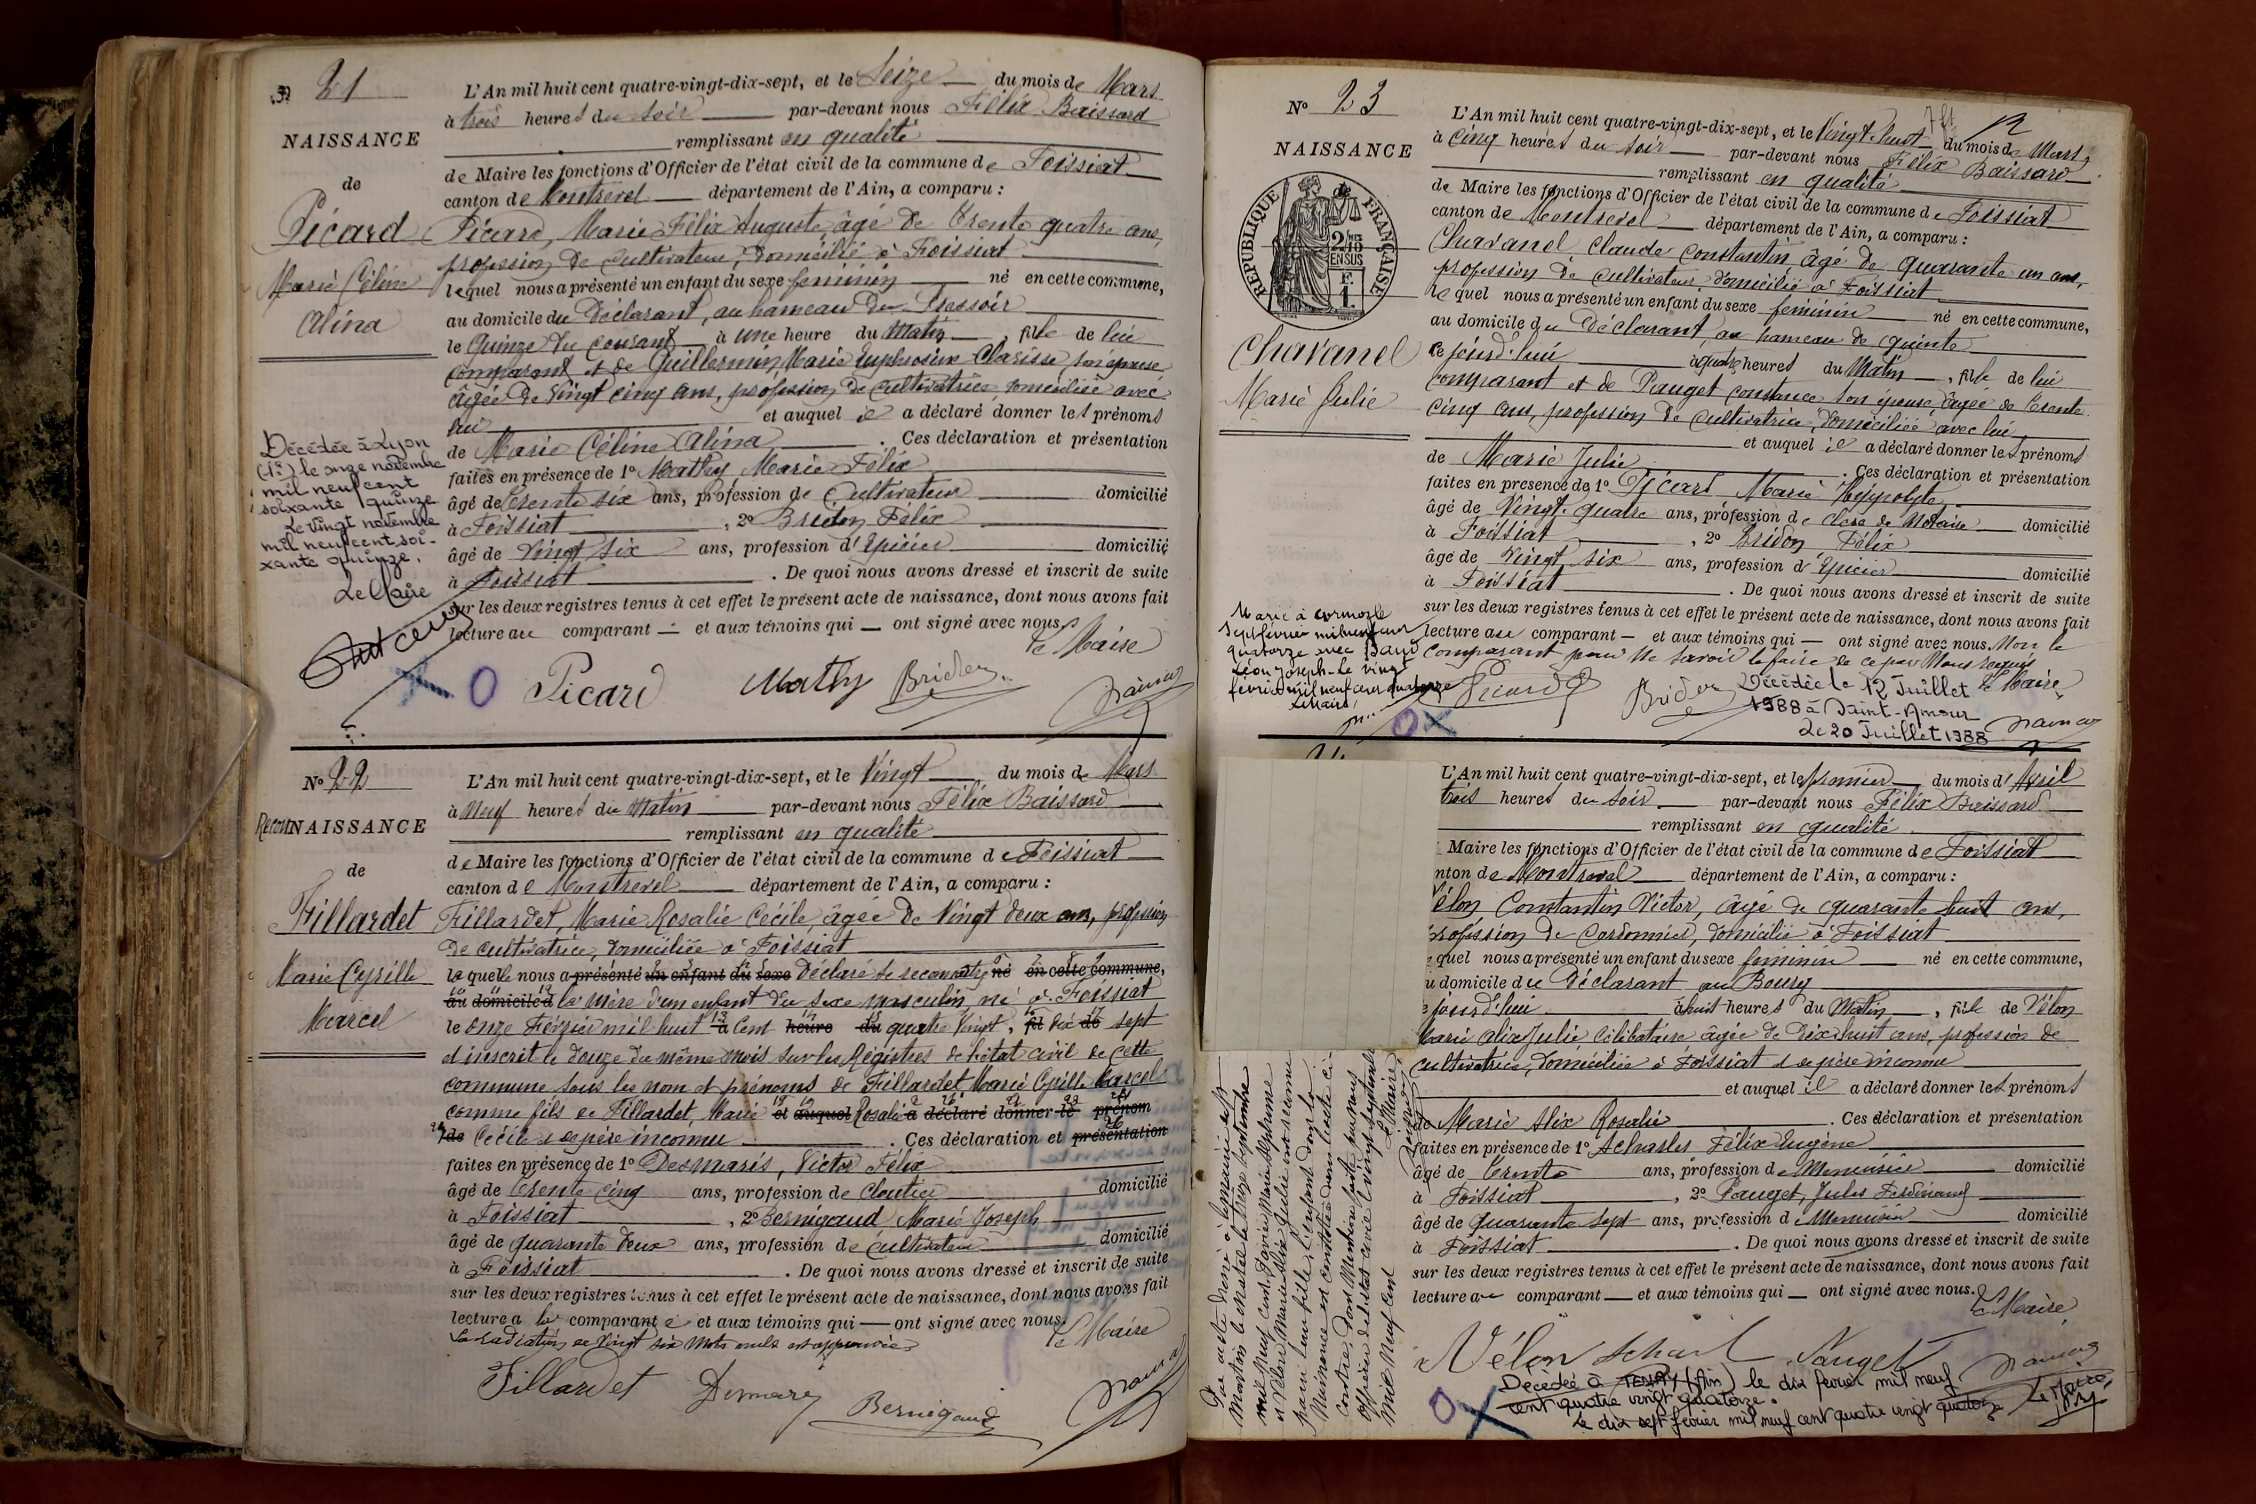 N° 21
NAISSANCE
de
Picard
Marie Céline
Alina
L'An mil huit cent quatre-vingt-dix-sept, et le Seize du mois de Mars
à trois heures du soir par-devant nous Félix Baissard
remplissant en qualité
de Maire les fonctions d'Officier de l'état civil de la commune de Foissiat
canton de Montrevel département de l'Ain, a comparu :
Picard, Marie Félix Auguste, âgé de trente quatre ans,
profession de cultivateur, domicilié à Foissiat
lequel nous a présenté un enfant du sexe féminin né en cette commune,
au domicile du Déclarant, au hameau du Pressoir
le Quinze du courant à une heure du Matin fille de lui
comparant et de Guillermin, Marie Euphrosine Clarisse, son épouse
âgée de Vingt cinq ans, profession de cultivatrice, domiciliée avec
lui et auquel il a déclaré donner les prénoms
de Marie Céline Alina . Ces déclaration et présentation
faites en présence de 1° Mathy, Marie Félix
âgé de trente six ans, profession de Cultivateur domicilié
à Foissiat , 2° Bridon Félix
âgé de Vingt six ans, profession d'Epicier domicilié
à Foissiat . De quoi nous avons dressé et inscrit de suite
sur les deux registres tenus à cet effet le présent acte de naissance, dont nous avons fait
lecture au comparant et aux témoins qui ont signé avec nous
Le Maire
Picard Mathy Bridon
Décédée à Lyon
(1er) le onze novembre
mil neuf cent
soixante quinze
Le vingt novembre
mil neuf cent soi-
xante quinze.
Le Maire
N° 22
ReconNAISSANCE
de
Fillardet
Marie Cyrille
Marcel
L'An mil huit cent quatre-vingt-dix-sept, et le Vingt du mois de Mars
à Neuf heures du Matin par-devant nous Félix Baissard
remplissant en qualité
de Maire les fonctions d'Officier de l'état civil de la commune de Foissiat
canton de Montrevel département de l'Ain, a comparu :
Fillardet, Marie Rosalie Cécile, âgée de Vingt deux ans, profession
de cultivatrice, domiciliée à Foissiat
laquelle nous a présenté un enfant du sexe Déclaré se reconnaître né en cette commune,
au domicile d la mère d'un enfant du sexe masculin, né à Foissiat
le onze Février mil huit à Cent heure du quatre Vingt, fil dix de sept
et inscrit le douze du même mois sur les Régistres de l'état civil de cette
commune sous les nom et prénoms de Fillardet Marie Cyrille Marcel
comme fils de Fillardet, Marie et auquel Rosalie a déclaré donner le prénom
de Cécile et de père inconnu . Ces déclaration et présentation
faites en présence de 1° Desmaris, Victor Félix
âgé de trente cinq ans, profession de Cloutier domicilié
à Foissiat , 2° Bernigaud Marie Joseph
âgé de quarante deux ans, profession de cultivateur domicilié
à Foissiat . De quoi nous avons dressé et inscrit de suite
sur les deux registres tenus à cet effet le présent acte de naissance, dont nous avons fait
lecture a la comparante et aux témoins qui ont signé avec nous.
La radiation de Vingt six Mots nuls est approuvée
Le Maire
Fillardet Desmaris Bernigaud
N° 23
NAISSANCE
RÉPUBLIQUE FRANÇAISE
2/10 EN SUS
F. 1.
Chavanel
Marie Julie
L'An mil huit cent quatre-vingt-dix-sept, et le Vingt huit du mois de Mars
à cinq heures du soir par-devant nous Félix Baissard
remplissant en qualité
de Maire les fonctions d'Officier de l'état civil de la commune de Foissiat
canton de Montrevel département de l'Ain, a comparu :
Chavanel, Claude Constantin âgé de quarante un ans,
profession de cultivateur, domicilié à Foissiat
lequel nous a présenté un enfant du sexe féminin né en cette commune,
au domicile du Déclarant, au hameau de quinte
ce jourd'hui à quatre heures du Matin, fille de lui
comparant et de Pauget Constance son épouse, âgée de trente
cinq ans, profession de cultivatrice, domiciliée avec lui
et auquel il a déclaré donner les prénoms
de Marie Julie . Ces déclaration et présentation
faites en présence de 1° Picard Marie Hyppolyte
âgé de Vingt quatre ans, profession de clerc de Notaire domicilié
à Foissiat , 2° Bridon Félix
âgé de Vingt six ans, profession d'Epicier domicilié
à Foissiat . De quoi nous avons dressé et inscrit de suite
sur les deux registres tenus à cet effet le présent acte de naissance, dont nous avons fait
lecture au comparant et aux témoins qui ont signé avec nous. Non le
comparant pour ne savoir le faire de ce par Nous requis
Picard Bridon Le Maire
Décédée le 12 Juillet
1988 à Saint-Amour
Le 20 Juillet 1988
Marié à Cormoz le
sept février mil neuf cent
quatorze avec
Léon Joseph. Le vingt
février mil neuf cent quatorze
Le Maire
L'An mil huit cent quatre-vingt-dix-sept, et le premier du mois d'Avril
trois heures du soir par-devant nous Félix Baissard
remplissant en qualité
Maire les fonctions d'Officier de l'état civil de la commune de Foissiat
nton de Montrevel département de l'Ain, a comparu :
élon Constantin Victor, âgé de quarante huit ans,
rofession de Cordonnier, domicilié à Foissiat
quel nous a présenté un enfant du sexe féminin né en cette commune,
u domicile du Déclarant au Bourg
e jourd'hui à huit heures du Matin, fille de Vélon
Marie Alix Julie Célibataire âgée de Dix huit ans, profession de
cultivatrice, domiciliée à Foissiat et de père inconnu
et auquel il a déclaré donner les prénoms
de Marie Alix Rosalie . Ces déclaration et présentation
faites en présence de 1° Félix Eugène
âgé de trente ans, profession de Menuisier domicilié
à Foissiat , 2° Pauget, Jules Ferdinand
âgé de Quarante Sept ans, profession de Menuisier domicilié
à Foissiat . De quoi nous avons dressé et inscrit de suite
sur les deux registres tenus à cet effet le présent acte de naissance, dont nous avons fait
lecture au comparant et aux témoins qui ont signé avec nous.
Le Maire
Vélon Pauget
Décédée à TENAY (Ain) le dix février mil neuf
cent quatre vingt quatorze.
Le dix sept février mil neuf cent quatre vingt quatorze Le Maire
Par acte dressé à la mairie de
le douze Septembre
mil neuf cent,
et Vélon Marie Alix Julie ont reconnu
pour leur fille, l'enfant dont la
Naissance est constatée dans l'acte ci-
contre, dont Mention faite par nous
Officier de l'état civil le vingt septembre
mil neuf cent
Le Maire